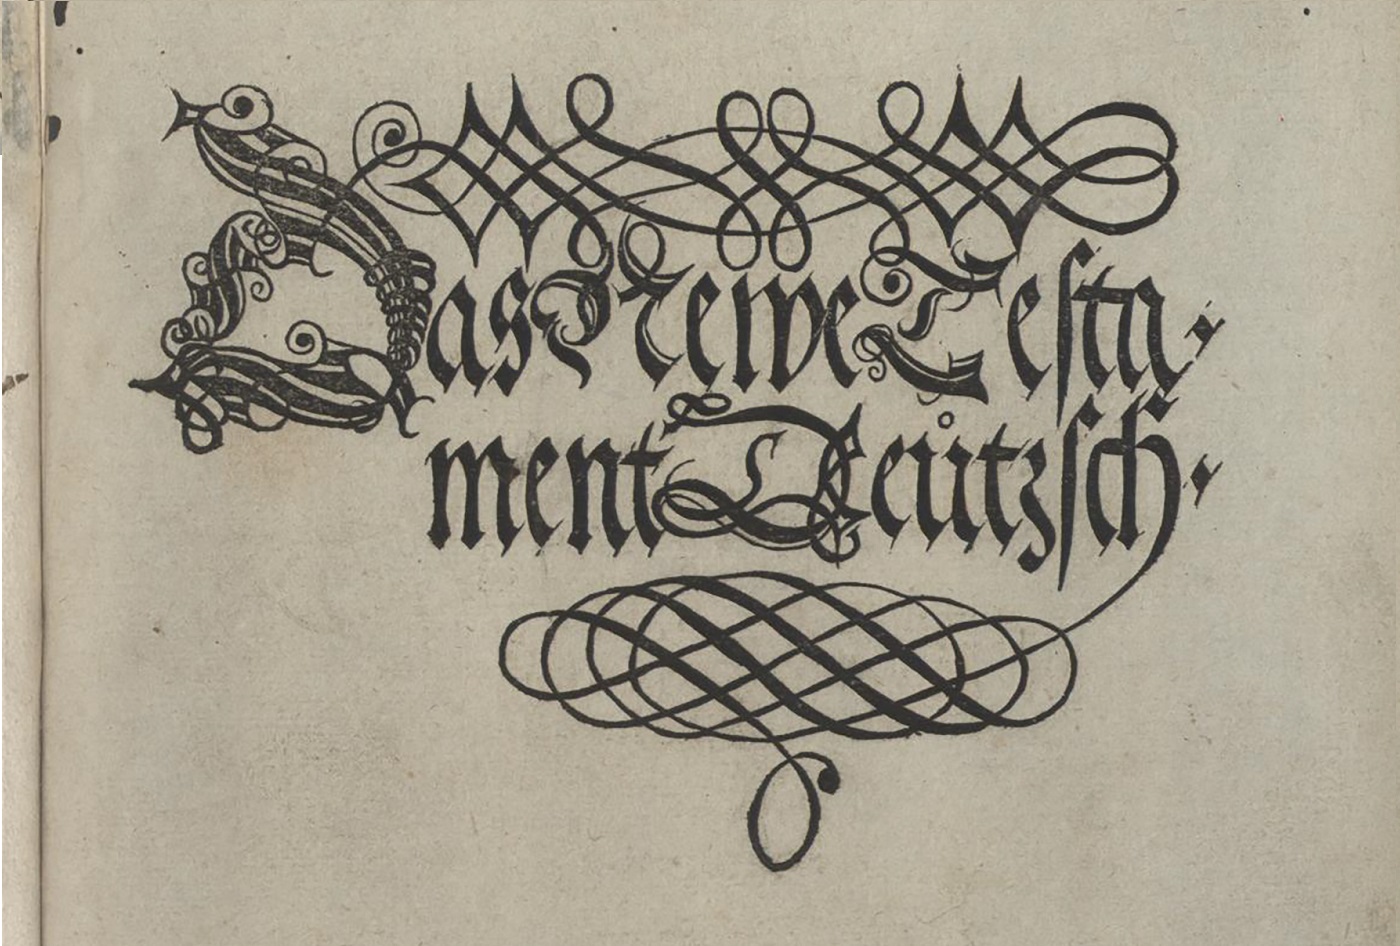 Das Newe Testa·
ment Deůtzsch·